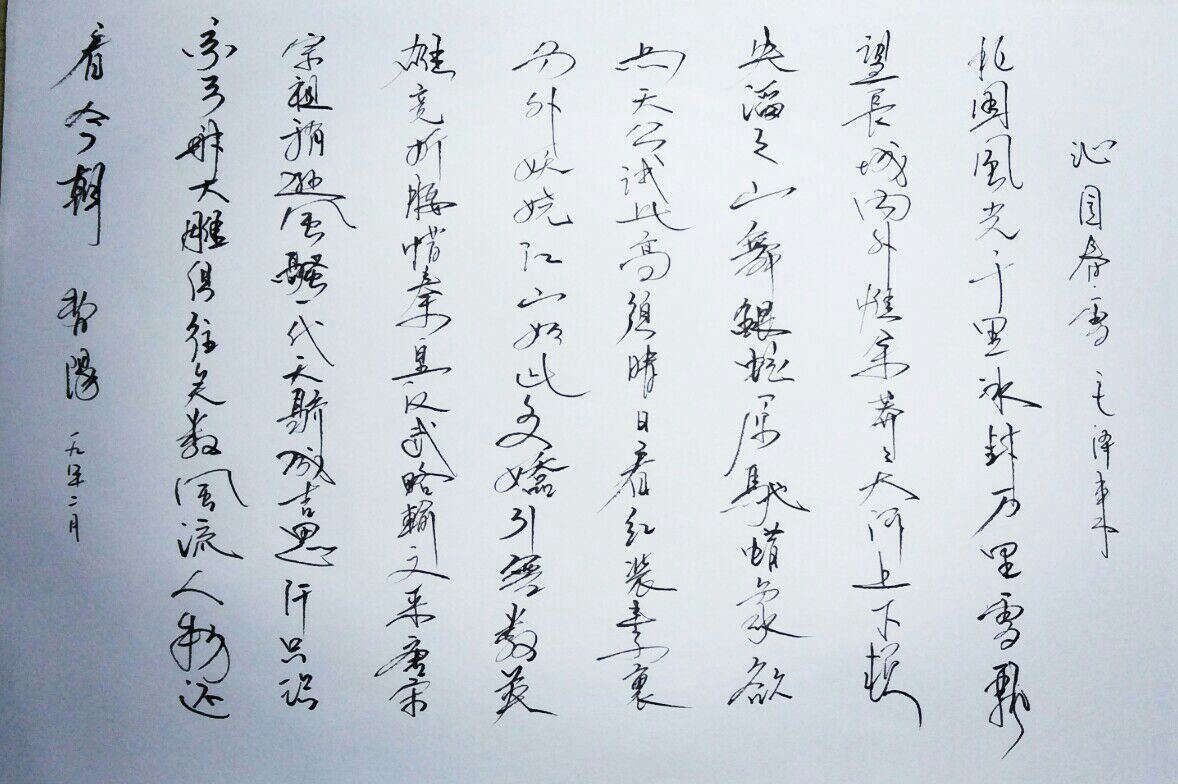 沁园春·雪 毛泽东
北國風光千里冰封万里雪飄
望長城内外惟余莽〻大河上下頓
失滔〻山舞銀蛇原馳蜡象欲
与天公试比高须晴日看红装素裹
分外妖娆江山如此多嬌引無数英
雄竞折腰惜秦皇汉武略輸文采唐宋
宗祖稍逊风騷一代天驕成吉思汗只识
弯弓射大雕俱往矣数风流人物还
看今朝 一九年二月